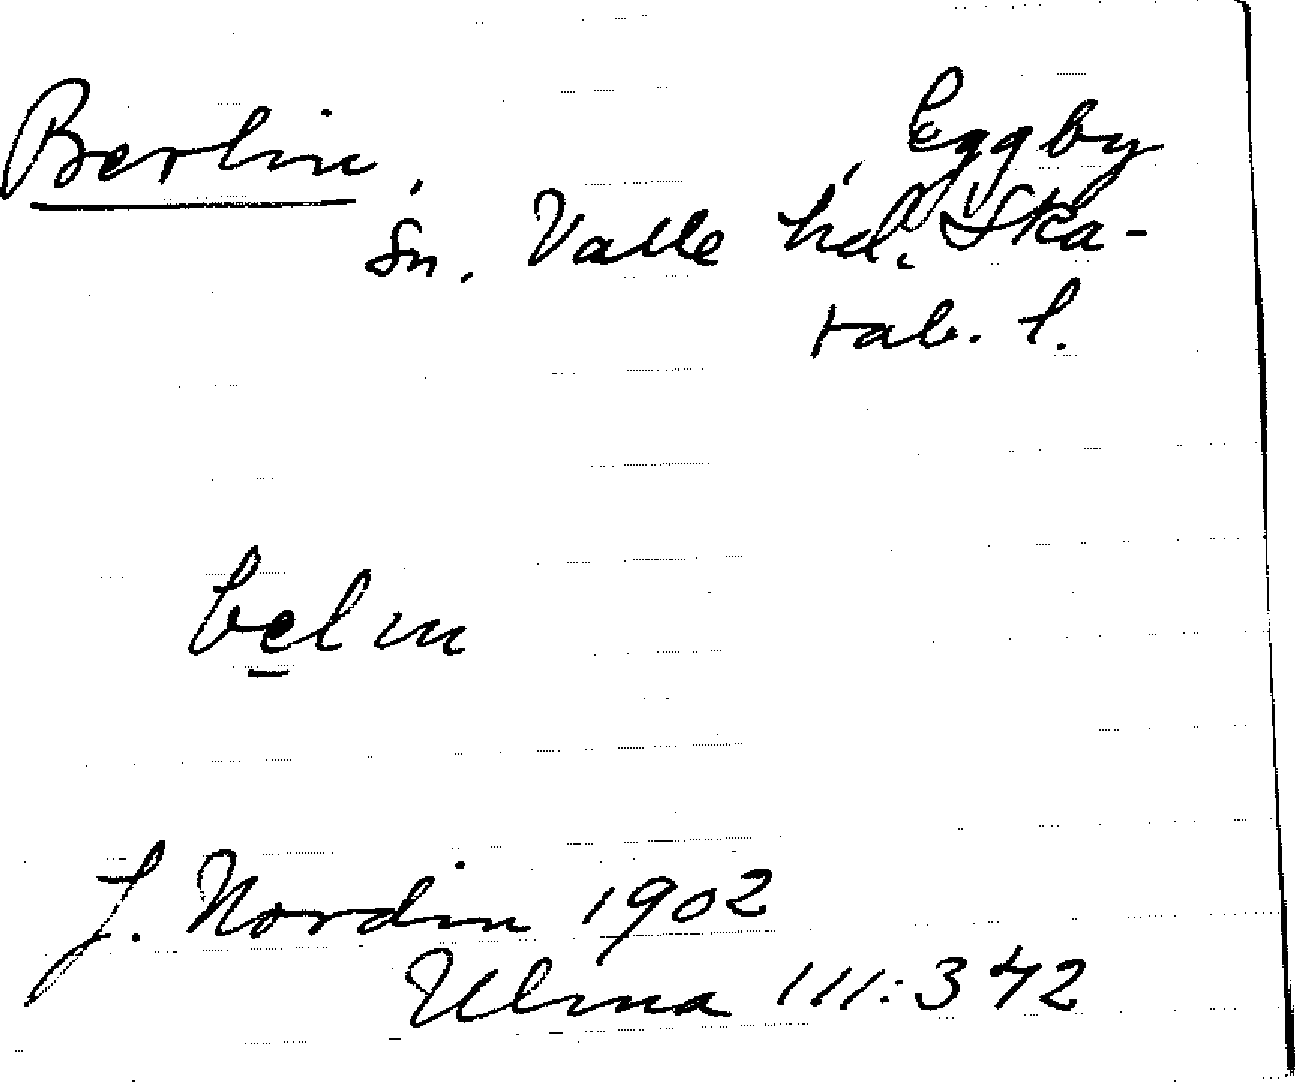 Berlin, Eggby
sn. Valle hd. Ska-
rab. l.
J. Nordin 1902
Ulma 111:342